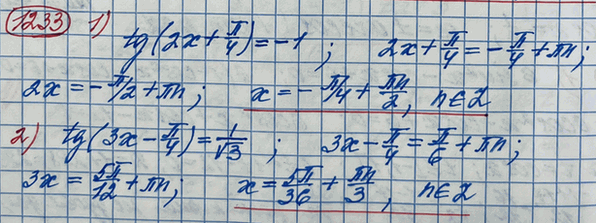 1233 1) tg(2x + π/4) = -1 ; 2x + π/4 = -π/4 + πn;
2x = -π/2 + πn; x = -π/4 + πn/2, n∈Z
2) tg(3x - π/4) = 1/√3 ; 3x - π/4 = π/6 + πn;
3x = 5π/12 + πn; x = 5π/36 + πn/3, n∈Z